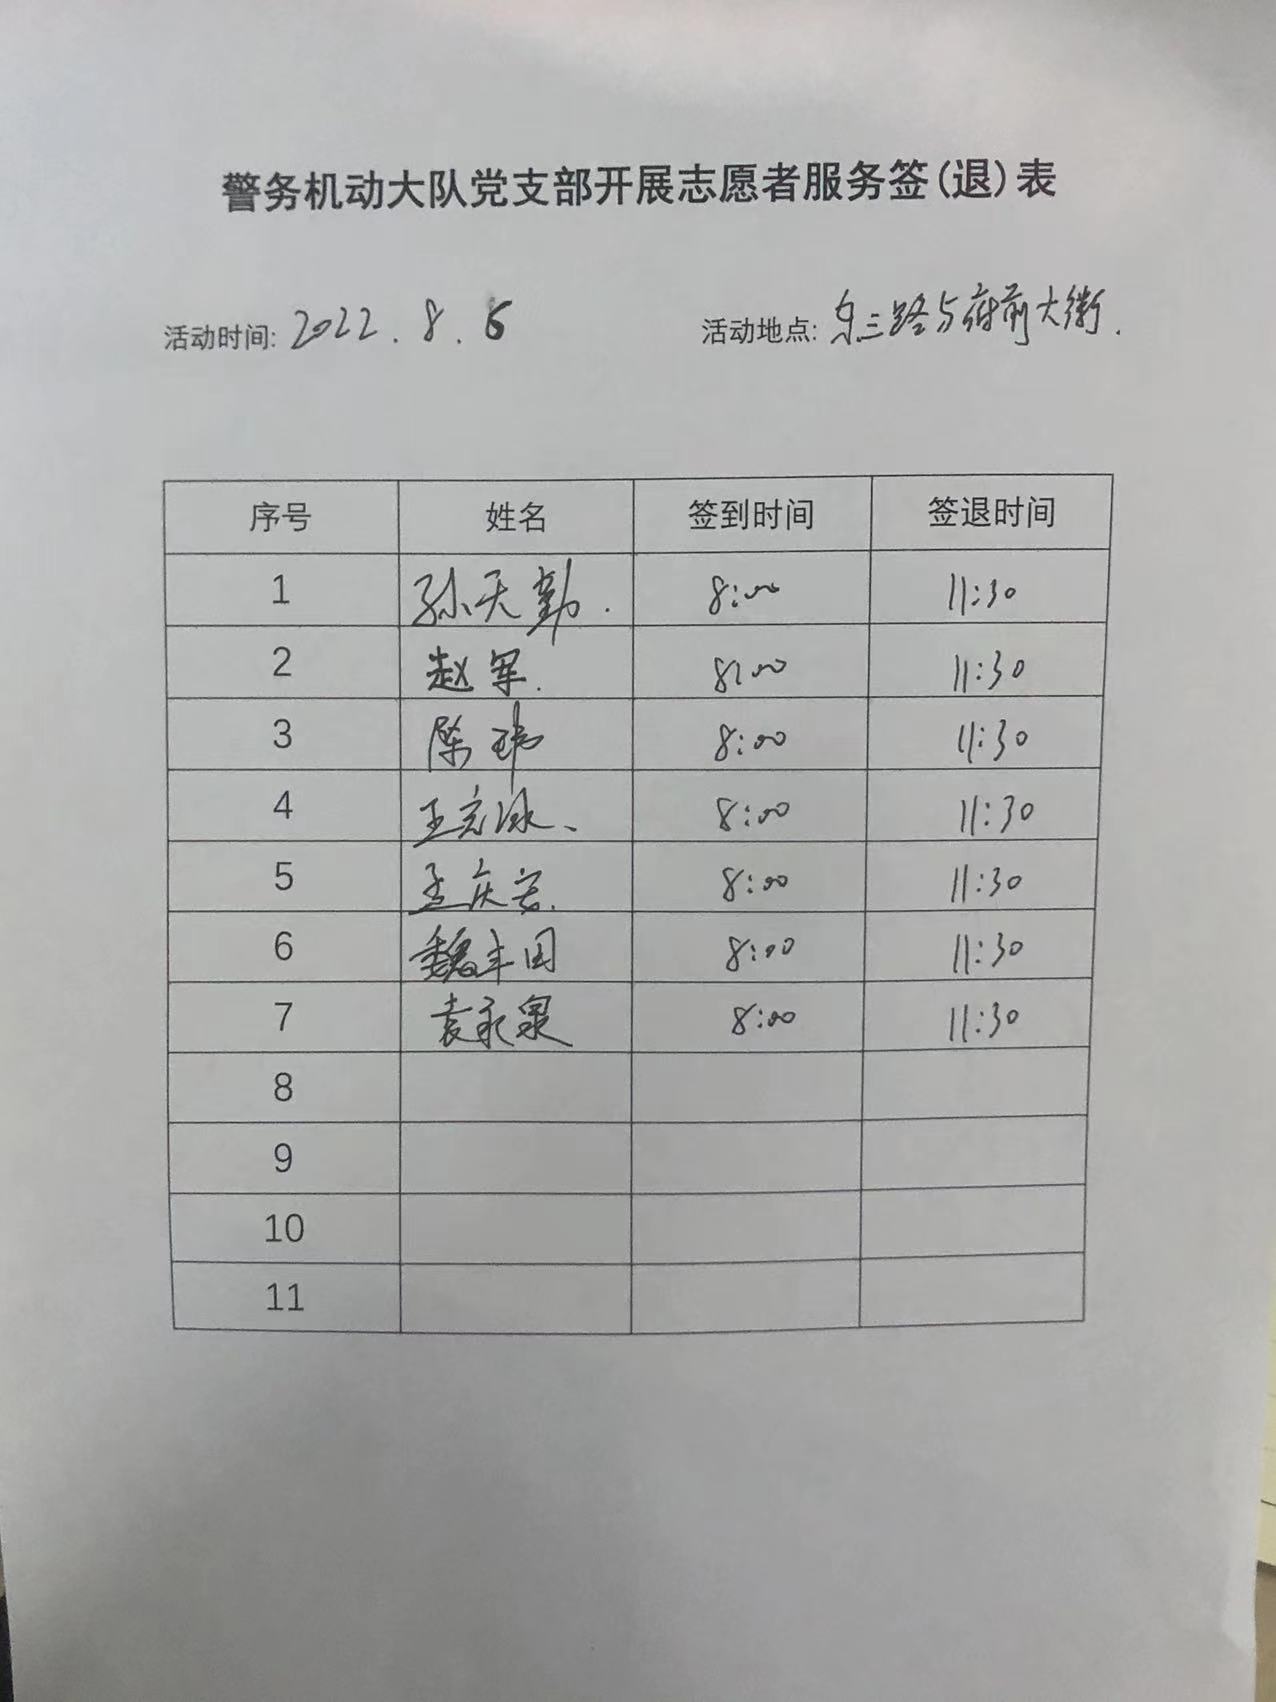 警务机动大队党支部开展志愿者服务签(退)表
活动时间: 2022.8.6 活动地点: 东三路与府前大街.
序号 姓名 签到时间 签退时间
1 孙天勤. 8:00 11:30
2 赵军. 8:00 11:30
3 陈玮 8:00 11:30
4 王 8:00 11:30
5 孟庆宏. 8:00 11:30
6 魏丰田 8:00 11:30
7 袁永泉 8:00 11:30
8
9
10
11